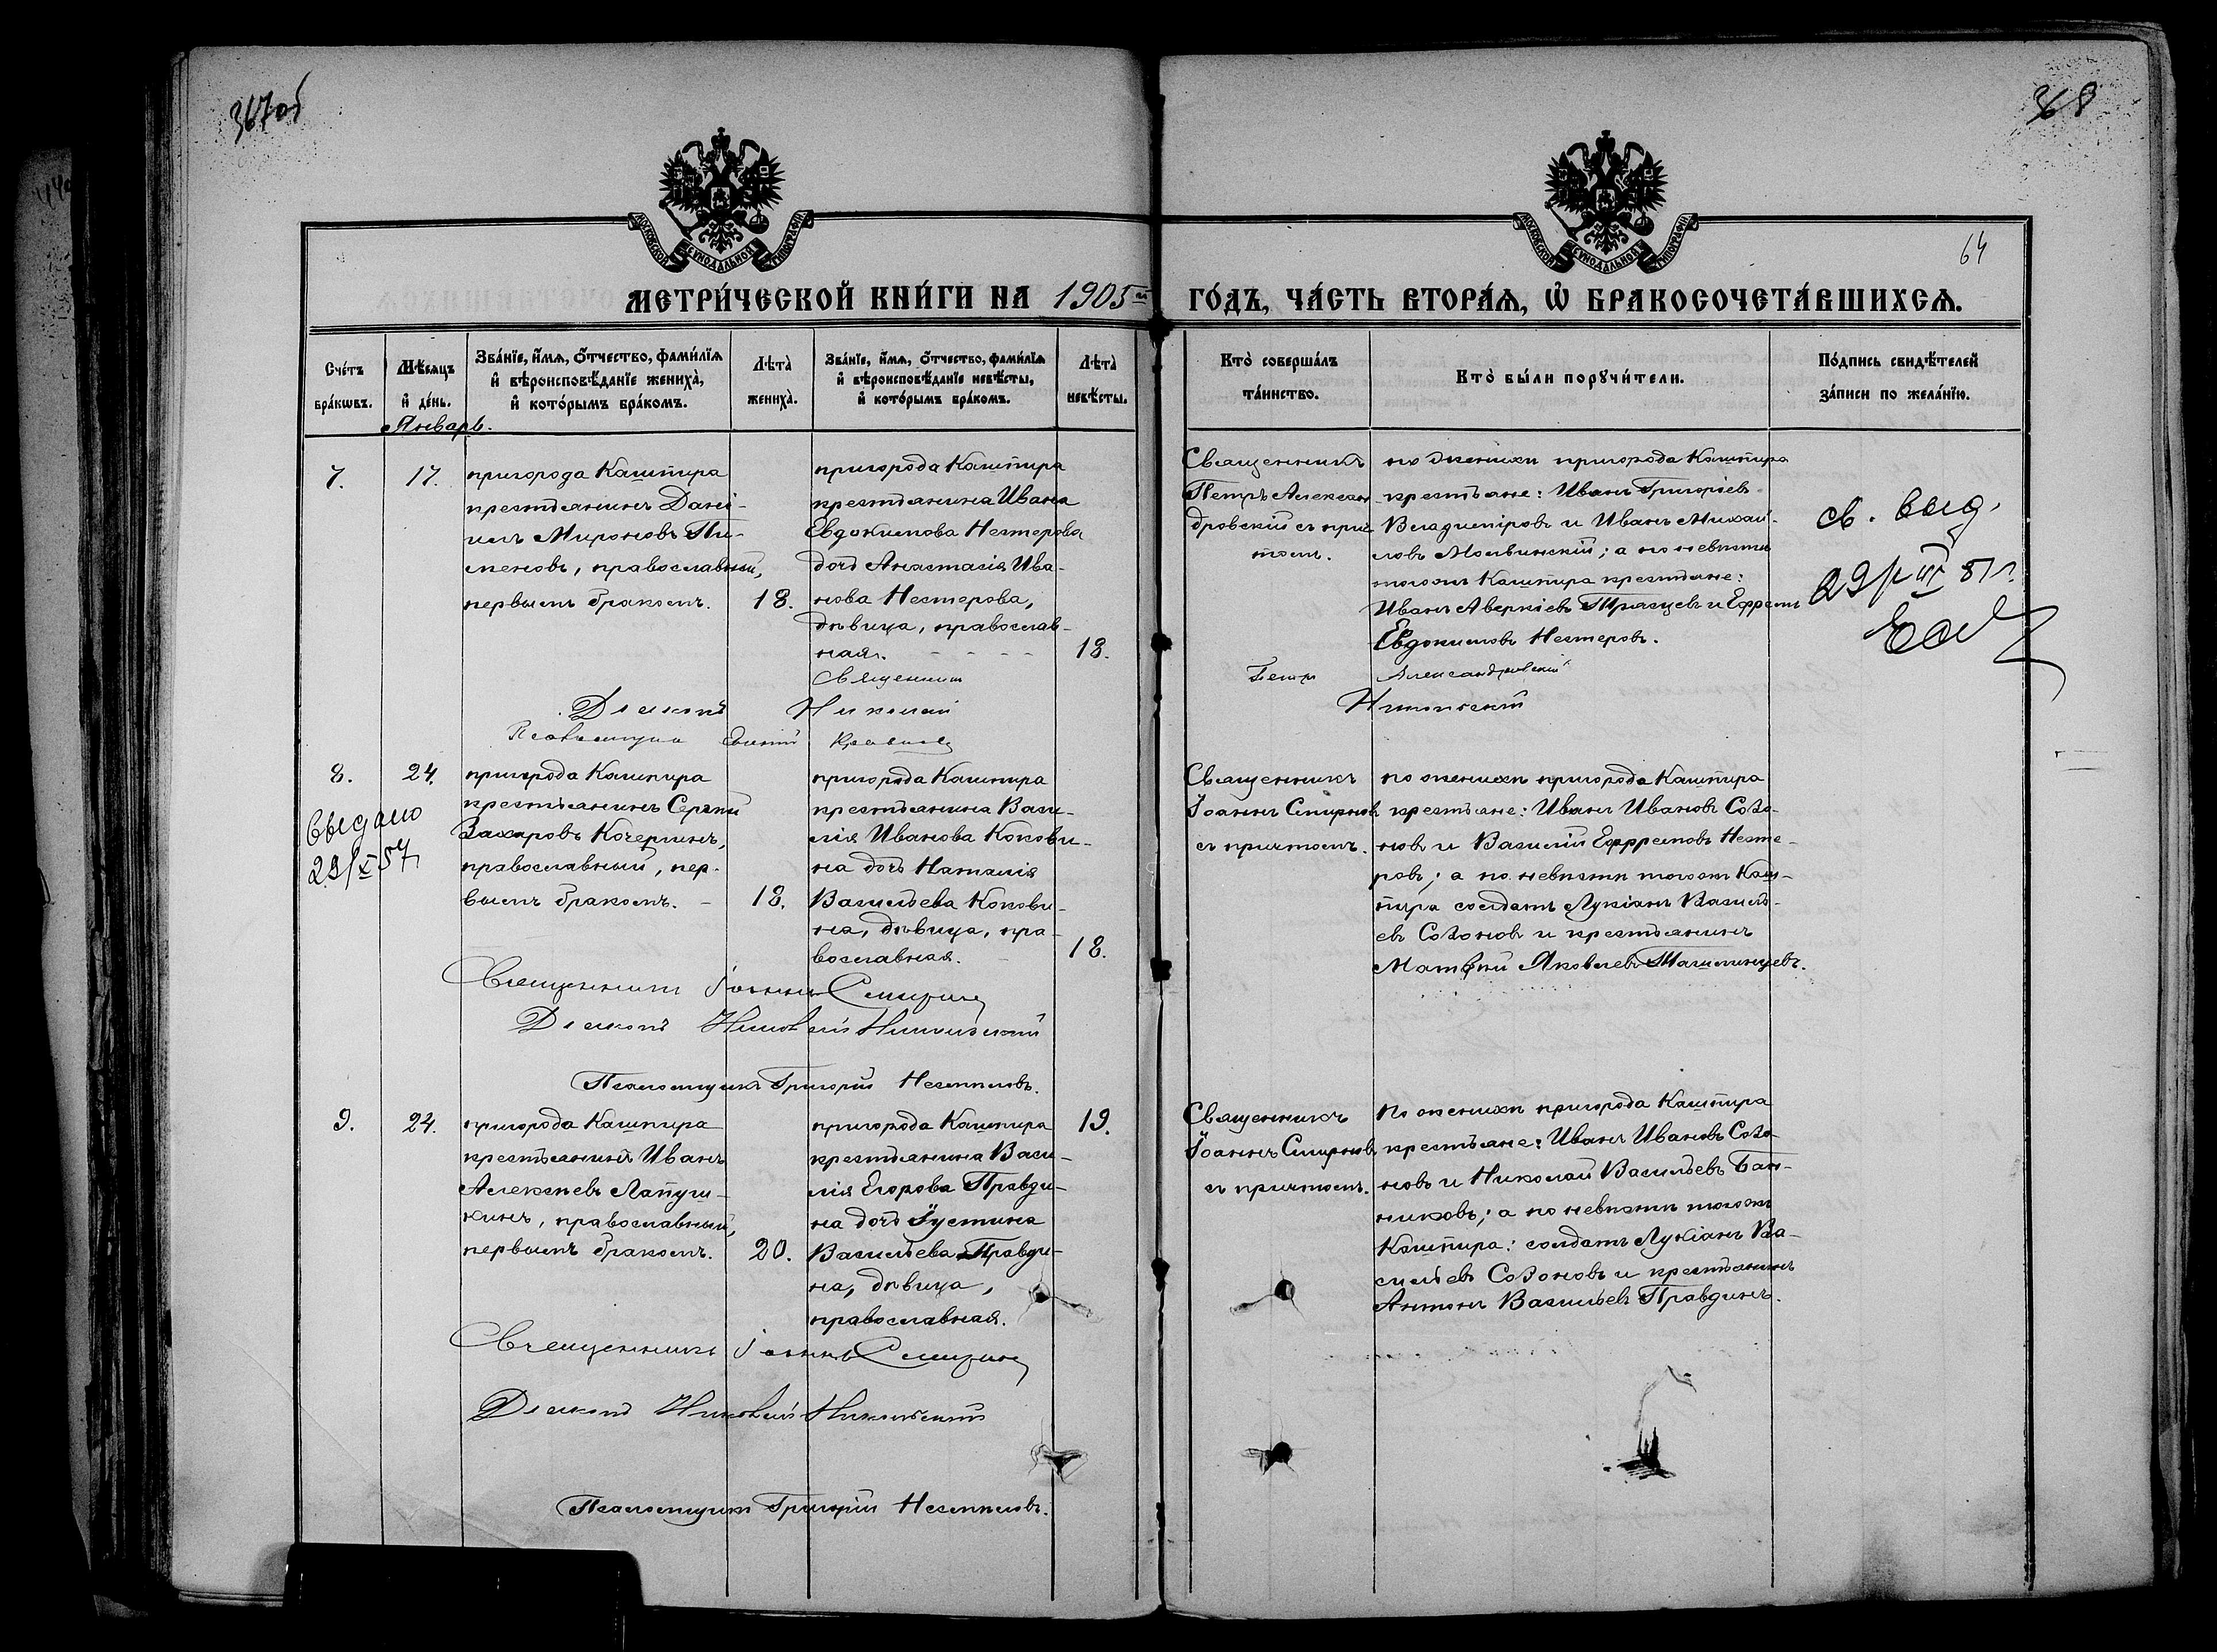 367об
368
64
МОСКОВСКОЙ СѴНОДАЛЬНОЙ ТИПОГРАФІИ
МОСКОВСКОЙ СѴНОДАЛЬНОЙ ТИПОГРАФІИ
МЕТРИ́ЧЕСКОЙ КНИ́ГИ НА 1905й ГО́ДЪ, ЧА́СТЬ ВТОРА́Я, Ѡ БРАКОСОЧЕТА́ВШИХСЯ.
Сче́тъ бра́кѡвъ.
Мѣ́сяцъ и де́нь.
Зва́нїе, и́мя, ѻ́тчество, фами́лїя и вѣроисповѣ́данїе жениха̀, и кото́рымъ бра́комъ.
Лѣта̀ жениха̀.
Зва́нїе, и́мя, ѻ́тчество, фами́лїя и вѣроисповѣ́данїе невѣ́сты, и кото́рымъ бра́комъ.
Лѣта̀ невѣ́сты.
Кто̀ соверша́лъ та́инство.
Кто̀ бы́ли порꙋчи́тели.
По́дпись свидѣ́телей за́писи по жела́нїю.
Январь.
7.
17.
пригорода Кашпира
крестьянинъ Дані-
илъ Мироновъ Пи-
меновъ, православный,
первымъ бракомъ.
18.
пригорода Кашпира
крестьянина Ивана
Евдокимова Нестерова
дочь Анастасія Ива-
нова Нестерова,
дѣвица, православ-
ная.
18.
Священникъ
Петръ Алексан-
дровскій съ прич-
томъ.
по женихѣ пригорода Кашпира
крестьяне: Иванъ Григоріевъ
Владиміровъ и Иванъ Михай-
ловъ Мольвинскій; а по невѣстѣ
тогоже Кашпира крестьяне:
Иванъ Аверкіевъ и Ефремъ
Евдокимовъ Нестеровъ.
св. выд.
Священникъ Петръ Александровскій
Діаконъ Николай Никольскій
Псаломщикъ
8.
24.
выдано
29/X 57
пригорода Кашпира
крестьянинъ Сергѣй
Захаровъ Кочергинъ,
православный, пер-
вымъ бракомъ.
18.
пригорода Кашпира
крестьянина Васи-
лія Иванова Кокови-
на дочь Наталія
Васильева Кокови-
на, дѣвица, пра-
вославная.
18.
Священникъ
Іоаннъ Смирновъ
съ причтомъ.
по женихѣ пригорода Кашпира
крестьяне: Иванъ Ивановъ Созо-
новъ и Василій Ефремовъ Несте-
ровъ; а по невѣстѣ тогоже Каш-
пира солдатъ Лукіанъ Василь-
евъ Созоновъ и крестьянинъ
Матвѣй Яковлевъ
Священникъ Іоаннъ Смирновъ
Діаконъ Николай Никольскій
Псаломщикъ Григорій
9.
24.
пригорода Кашпира
крестьянинъ Иванъ
Алексѣевъ Лапуш-
кинъ, православный,
первымъ бракомъ.
20.
пригорода Кашпира
крестьянина Васи-
лія Егорова Правди-
на дочь Іустина
Васильева Правди-
на, дѣвица,
православная.
19.
Священникъ
Іоаннъ Смирновъ
съ причтомъ.
По женихѣ пригорода Кашпира
крестьяне: Иванъ Ивановъ Созо-
новъ и Николай Васильевъ Бан-
никовъ; а по невѣстѣ тогоже
Кашпира: солдатъ Лукіанъ Ва-
сильевъ Созоновъ и крестьянинъ
Антонъ Васильевъ Правдинъ.
Священникъ Іоаннъ Смирновъ
Діаконъ Николай Никольскій
Псаломщикъ Григорій